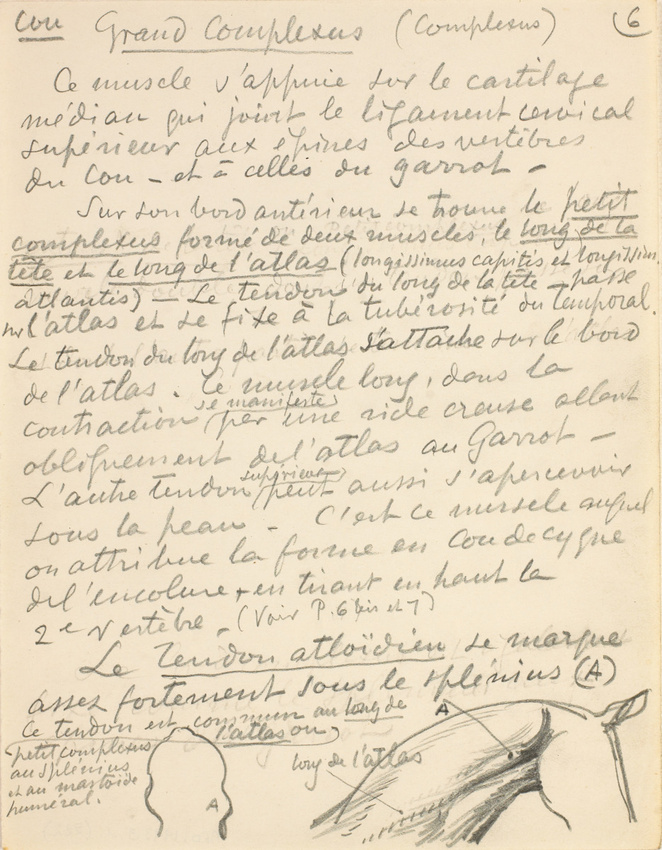 Cou Grand Complexus (Complexus) 6
Ce muscle s'appuie sur le cartilage
médian qui joint le ligament cervical
supérieur aux épines des vertèbres
du Cou – et à celles du garrot –
Sur son bord antérieur se trouve le petit
complexus, formé de deux muscles, le long de la
tête et le long de l'atlas (longissimus capitis et longissim.
atlantis) – Le tendon du long de la tête – passe
sur l'atlas et se fixe à la tubérosité du temporal.
Le tendon du long de l'atlas s'attache sur le bord
de l'atlas. Ce muscle long, dans la
contraction se manifeste par une ride creuse allant
obliquement de l'atlas au Garrot –
L'autre tendon supérieur peut aussi s'apercevoir
sous la peau – C'est ce muscle auquel
on attribue la forme en Cou de cygne
de l'encolure, en tirant en haut la
2e vertèbre – (Voir P. 6 bis et 7)
Le Tendon atloïdien se marque
assez fortement sous le splénius (A)
Ce tendon est commun au long de
l'atlas ou
petit complexus
au splénius
et au mastoïde
huméral.
A
A
long de l'atlas